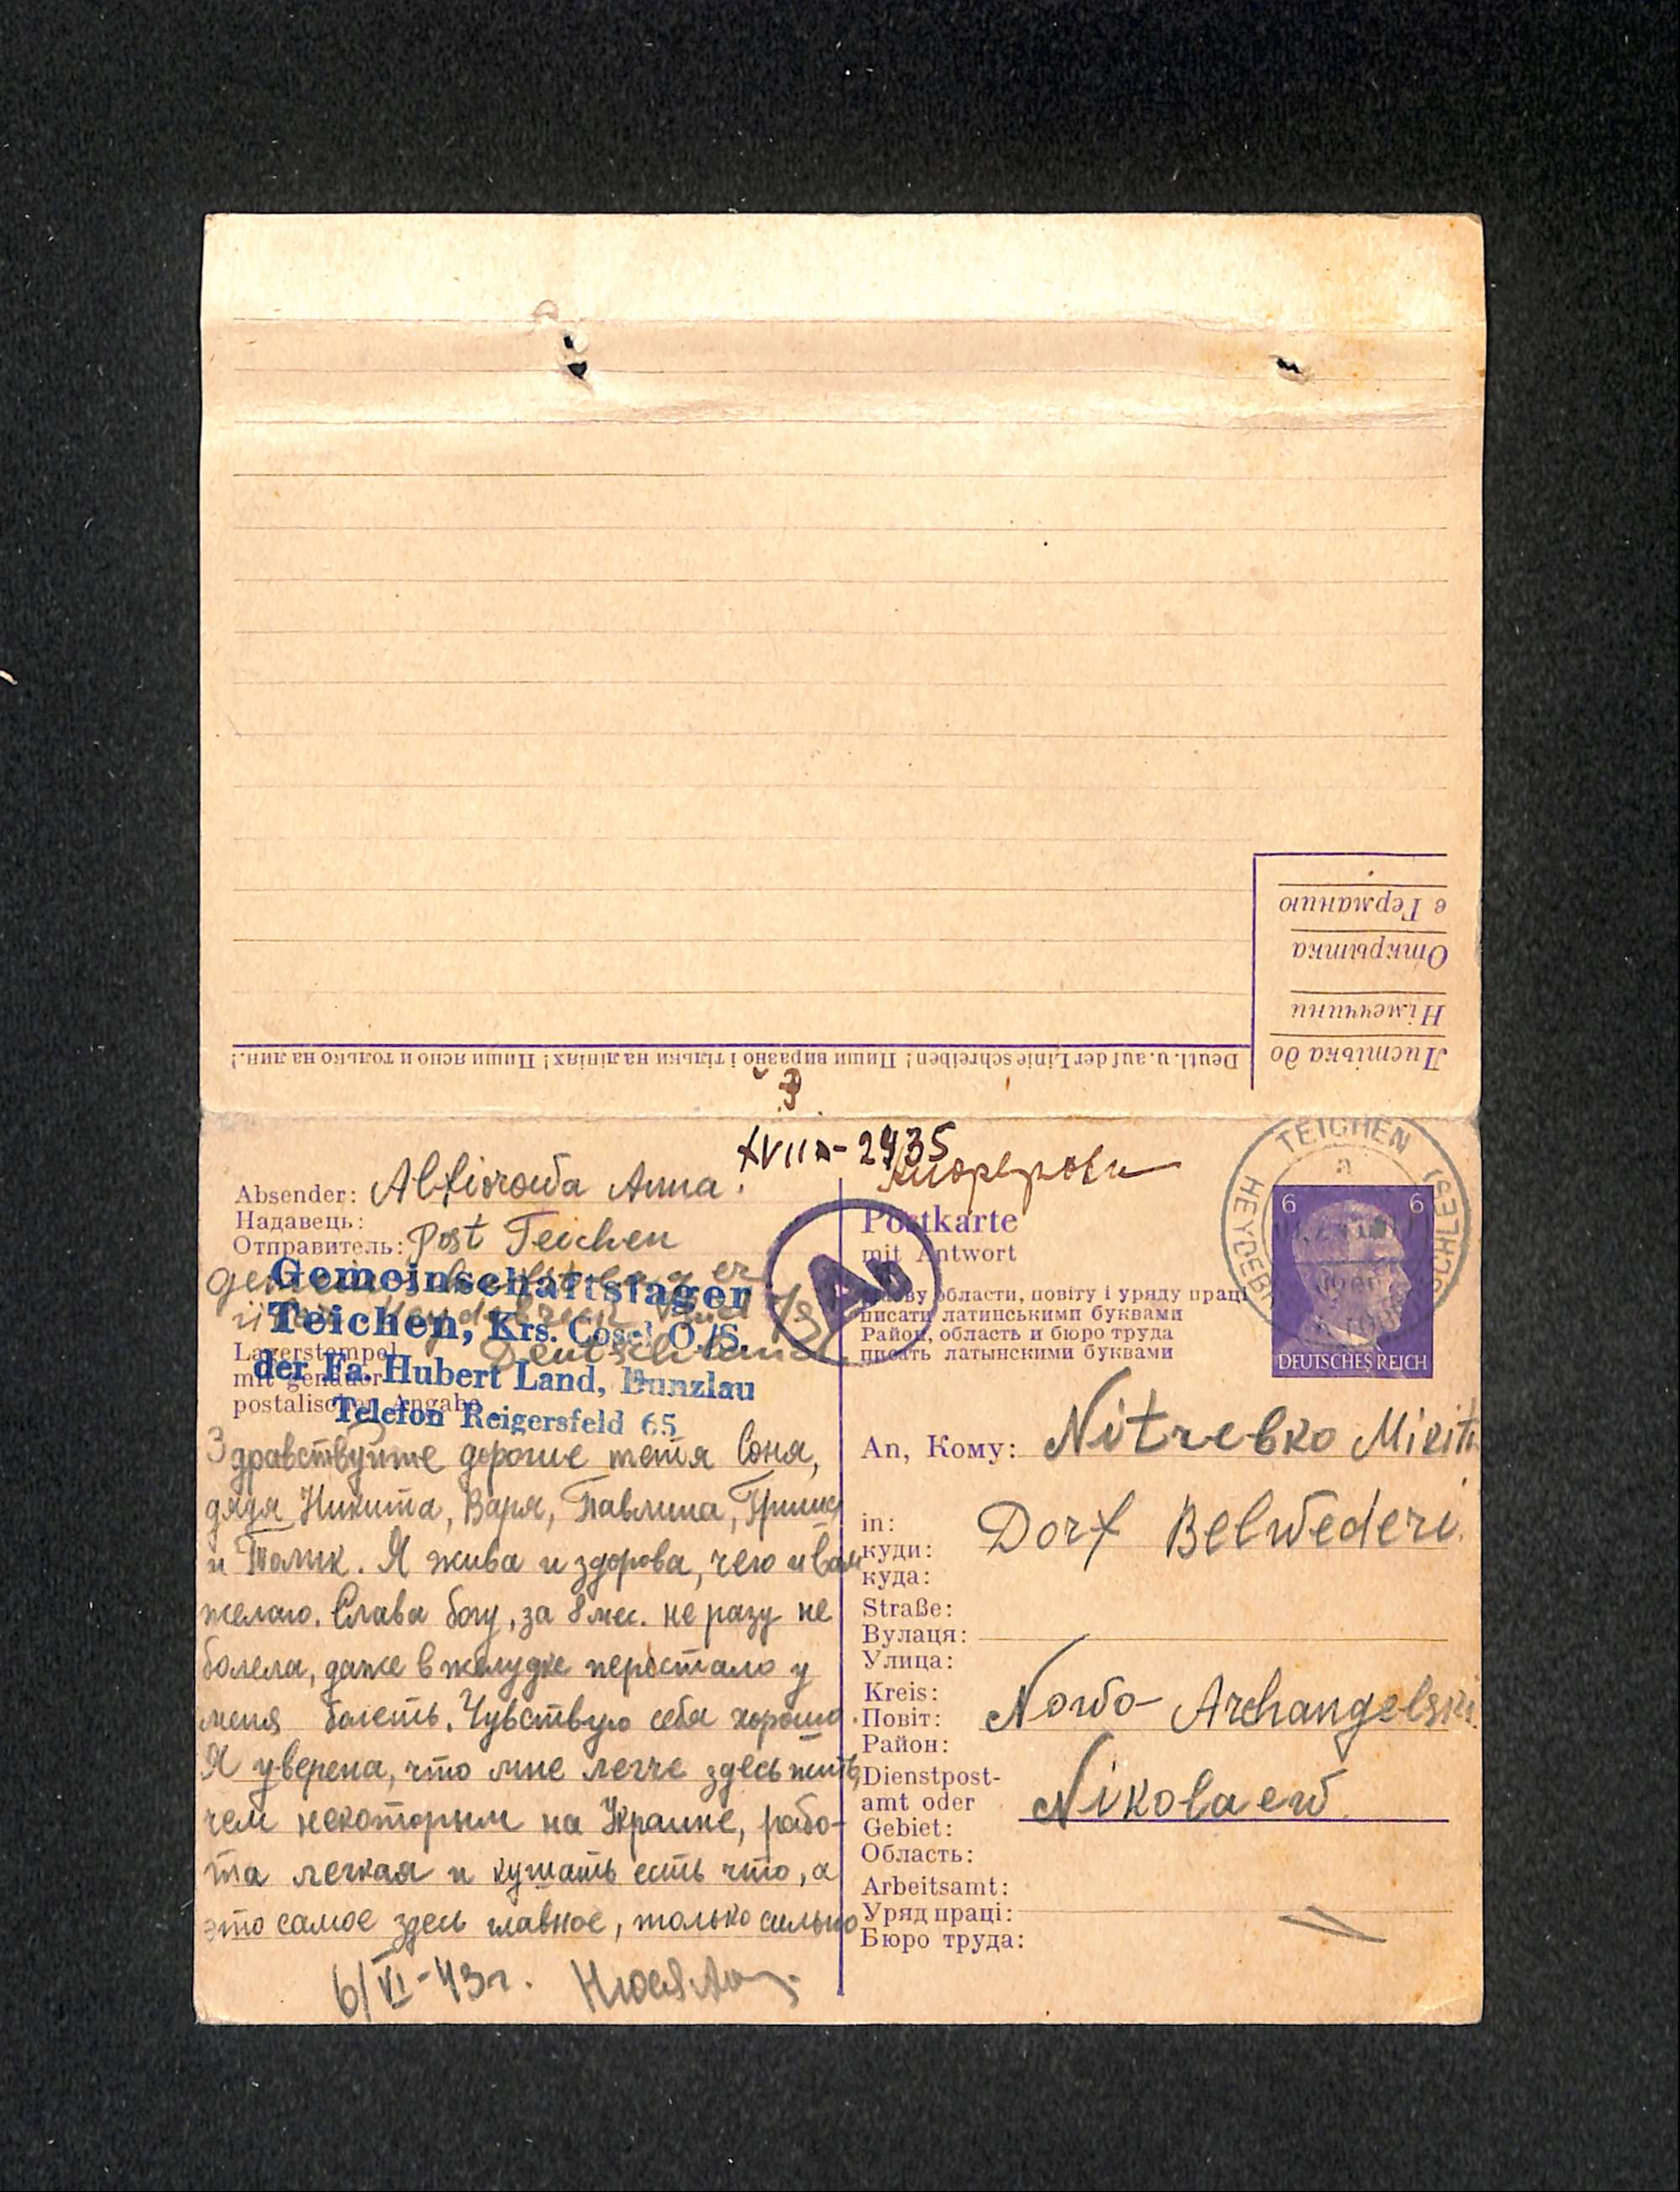 Листівка до
Німеччини
Открытка
в Германию
Deutl. u. auf der Linie schreiben! Пиши виразно і тільки на лініях! Пиши ясно и только на лин.!
XVIIa-2935
Absender: Alfiorowa Anna.
Надавець:
Отправитель: Post Teichen
Gemeinschaftslager
Deutschland
Lagerstempel
mit genauer
postalischer Angabe
Gemeinschaftslager
Teichen, Krs. Cosel O/S.
der Fa. Hubert Land, Bunzlau
Telefon Reigersfeld 65
Здравствуйте дорогие тетя Соня,
дядя Никита, Варя, Павлина, Гриша
и Толик. Я жива и здорова, чего и вам
желаю. Слава богу, за 8 мес. не разу не
болела, даже в желудке перестало у
меня болеть. Чувствую себя хорошо.
Я уверена, что мне легче здесь жить,
чем некоторым на Украине, рабо-
та легкая и кушать есть что, а
это самое здесь главное, только сильно
6/VI-43г.
Ab
Postkarte
mit Antwort
Назву области, повіту і уряду праці
писати латинськими буквами
Район, область и бюро труда
писать латынскими буквами
TEICHEN
a
6 6
DEUTSCHES REICH
An, Кому: Nitrebko Mikit
in:
куди: Dorf Belwederi.
куда:
Straße:
Вулаця:
Улица:
Kreis:
Повіт: Nowo-Archangelski
Район:
Dienstpost-
amt oder Nikolaew
Gebiet:
Область:
Arbeitsamt:
Уряд праці:
Бюро труда: